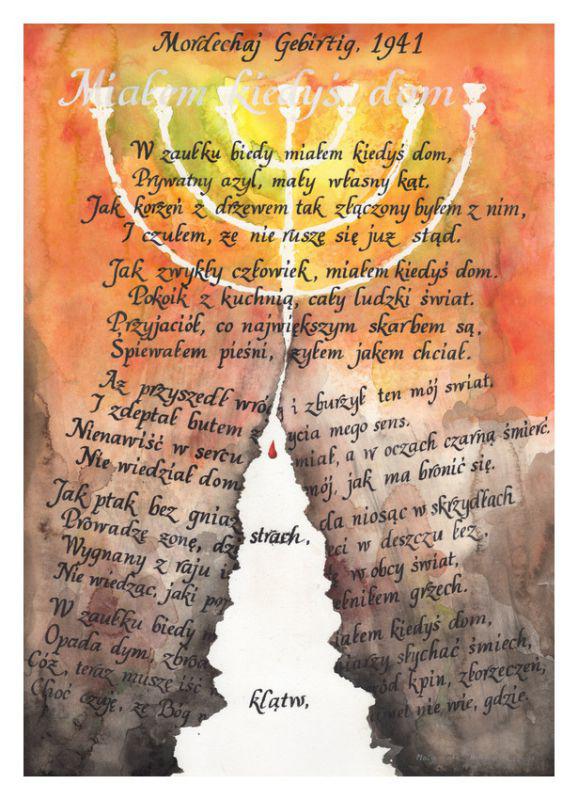 Mordechaj Gebirtig, 1941
Miałem kiedyś dom
W zaułku biedy miałem kiedyś dom,
Prywatny azyl, mały własny kąt.
Jak korzeń z drzewem tak złączony byłem z nim,
I czułem, że nie ruszę się już stąd.
Jak zwykły człowiek, miałem kiedyś dom.
Pokoik z kuchnią, cały ludzki świat.
Przyjaciół, co największym skarbem są,
Śpiewałem pieśni, żyłem jakem chciał.
Aż przyszedł wróg i zburzył ten mój świat,
I zdeptał butem życia mego sens.
Nienawiść w sercu miał, a w oczach czarną śmierć.
Nie wiedział dom mój, jak ma bronić się.
Jak ptak bez gniaz strach, da niosąc w skrzydłach
Prowadzę żonę, dzi eci w deszczu łez,
Wygnany z raju i w obcy świat,
Nie wiedząc, jaki po ełniłem grzech.
W zaułku biedy m iałem kiedyś dom,
Opada dym, zbrod niarzy słychać śmiech,
Cóż, teraz muszę iść klątw, ród kpin, złorzeczeń,
Choć czuję, że Bóg nawet nie wie, gdzie.